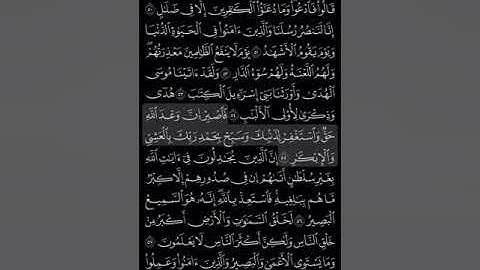 قَالُوا۟ فَٱدْعُوا۟ وَمَا دُعَٰٓؤُا۟ ٱلْكَٰفِرِينَ إِلَّا فِى ضَلَٰلٍ ٥٠
إِنَّا لَنَنصُرُ رُسُلَنَا وَٱلَّذِينَ ءَامَنُوا۟ فِى ٱلْحَيَوٰةِ ٱلدُّنْيَا
وَيَوْمَ يَقُومُ ٱلْأَشْهَٰدُ ٥١ يَوْمَ لَا يَنفَعُ ٱلظَّٰلِمِينَ مَعْذِرَتُهُمْ
وَلَهُمُ ٱللَّعْنَةُ وَلَهُمْ سُوٓءُ ٱلدَّارِ ٥٢ وَلَقَدْ ءَاتَيْنَا مُوسَى
ٱلْهُدَىٰ وَأَوْرَثْنَا بَنِىٓ إِسْرَٰٓءِيلَ ٱلْكِتَٰبَ ٥٣ هُدًى
وَذِكْرَىٰ لِأُو۟لِى ٱلْأَلْبَٰبِ ٥٤ فَٱصْبِرْ إِنَّ وَعْدَ ٱللَّهِ
حَقٌّ وَٱسْتَغْفِرْ لِذَنۢبِكَ وَسَبِّحْ بِحَمْدِ رَبِّكَ بِٱلْعَشِىِّ
وَٱلْإِبْكَٰرِ ٥٥ إِنَّ ٱلَّذِينَ يُجَٰدِلُونَ فِىٓ ءَايَٰتِ ٱللَّهِ
بِغَيْرِ سُلْطَٰنٍ أَتَىٰهُمْ إِن فِى صُدُورِهِمْ إِلَّا كِبْرٌ
مَّا هُم بِبَٰلِغِيهِ فَٱسْتَعِذْ بِٱللَّهِ إِنَّهُۥ هُوَ ٱلسَّمِيعُ
ٱلْبَصِيرُ ٥٦ لَخَلْقُ ٱلسَّمَٰوَٰتِ وَٱلْأَرْضِ أَكْبَرُ مِنْ
خَلْقِ ٱلنَّاسِ وَلَٰكِنَّ أَكْثَرَ ٱلنَّاسِ لَا يَعْلَمُونَ ٥٧
وَمَا يَسْتَوِى ٱلْأَعْمَىٰ وَٱلْبَصِيرُ وَٱلَّذِينَ ءَامَنُوا۟ وَعَمِلُوا۟